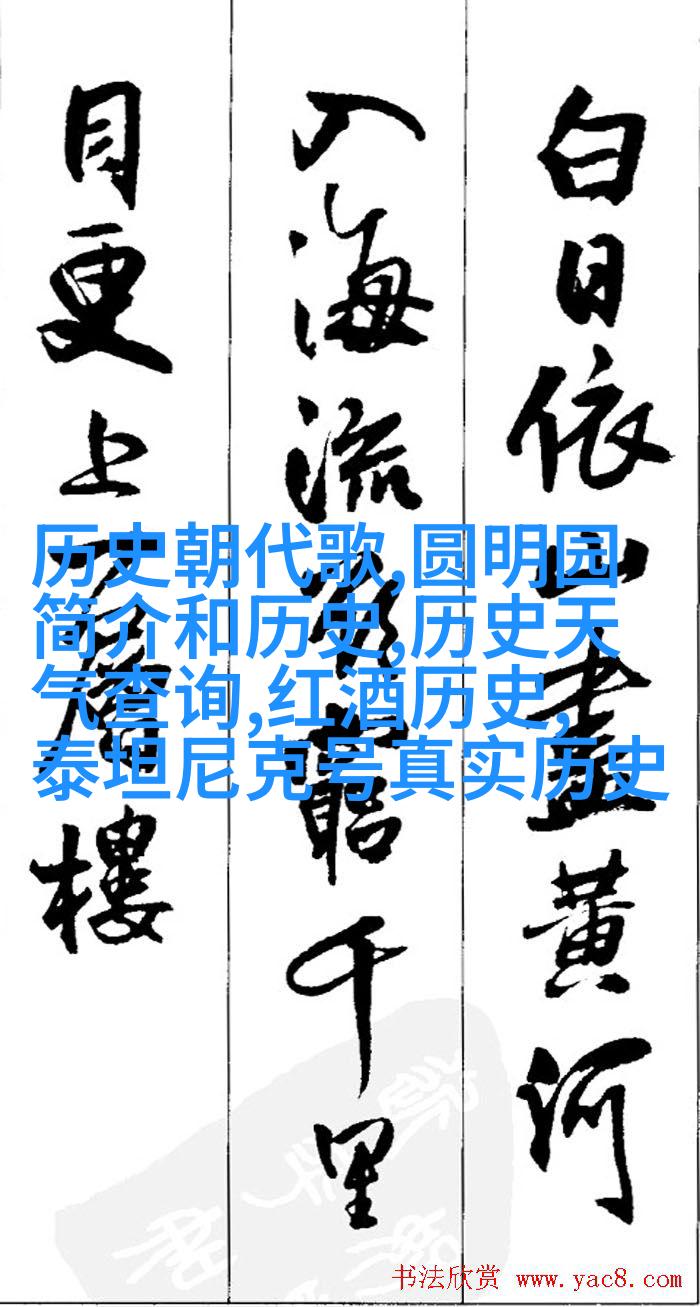 白日依山盡黃河
入海流欲窮千里
目更上一層樓
历史朝代歌,圆明园
简介和历史,历史天
气查询,红酒历史,
泰坦尼克号真实历史
书法欣赏 www.yac8.com